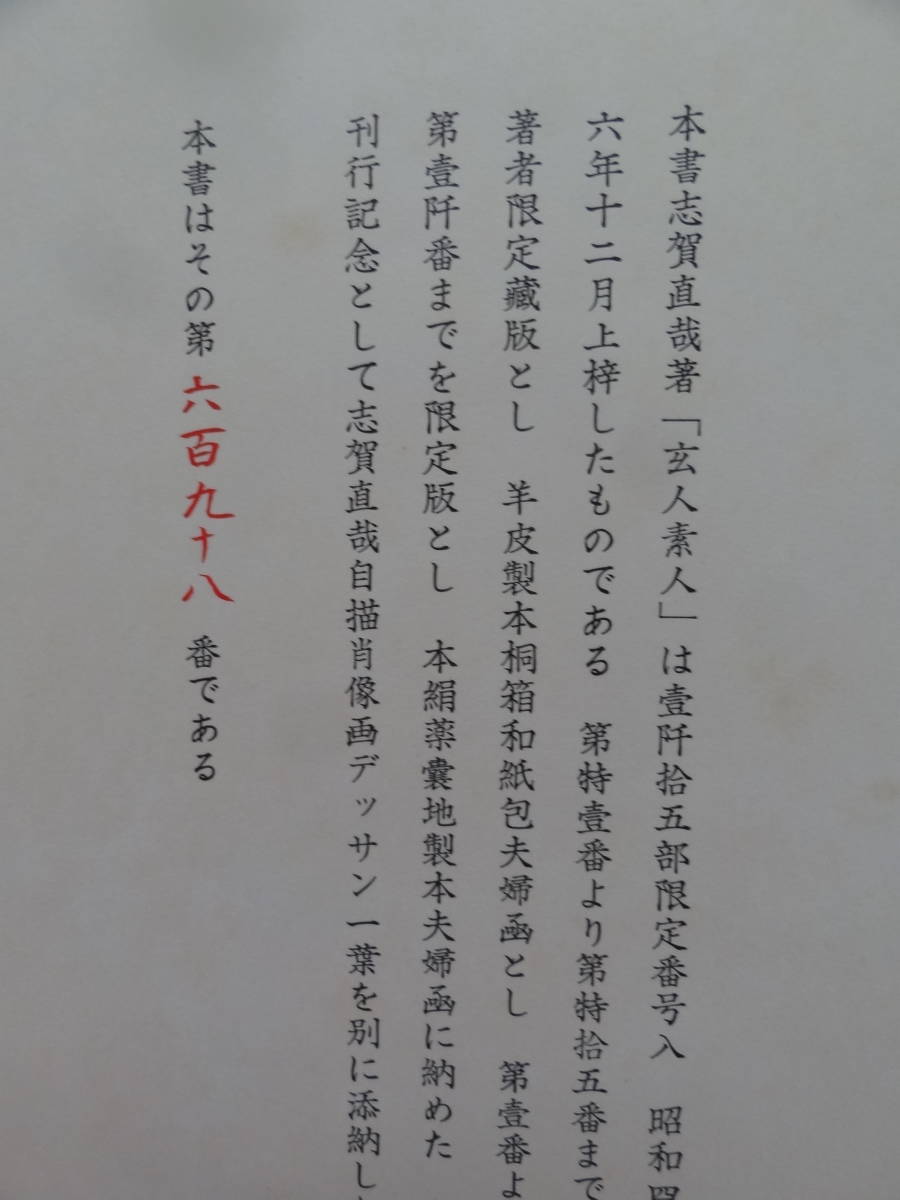 本書志賀直哉著「玄人素人」は壹阡拾五部限定番号入　昭和四
六年十二月上梓したものである　第特壹番より第特拾五番まで
著者限定藏版とし　羊皮製本桐箱和紙包夫婦函とし　第壹番よ
第壹阡番までを限定版とし　本絹薬嚢地製本夫婦函に納めた
刊行記念として志賀直哉自描肖像画デッサン一葉を別に添納し
本書はその第六百九十八番である